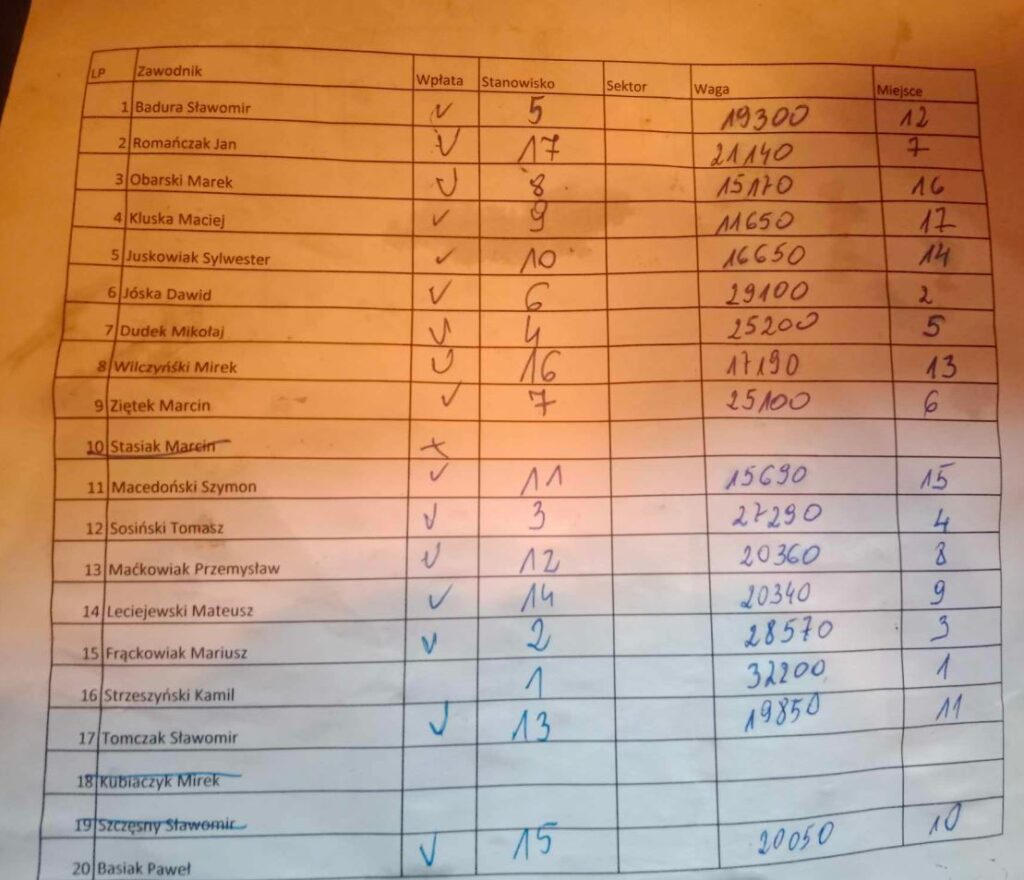 LP Zawodnik Wpłata Stanowisko Sektor Waga Miejsce
1 Badura Sławomir ✓ 5 19300 12
2 Romańczak Jan ✓ 17 21140 7
3 Obarski Marek ✓ 8 15170 16
4 Kluska Maciej ✓ 9 11650 17
5 Juskowiak Sylwester ✓ 10 16650 14
6 Jóska Dawid ✓ 6 29100 2
7 Dudek Mikołaj ✓ 4 25200 5
8 Wilczyńśki Mirek ✓ 16 17190 13
9 Ziętek Marcin ✓ 7 25100 6
10 Stasiak Marcin x
11 Macedoński Szymon ✓ 11 15690 15
12 Sosiński Tomasz ✓ 3 27290 4
13 Maćkowiak Przemysław ✓ 12 20360 8
14 Leciejewski Mateusz ✓ 14 20340 9
15 Frąckowiak Mariusz ✓ 2 28570 3
16 Strzeszyński Kamil 1 32200 1
17 Tomczak Sławomir ✓ 13 19850 11
18 Kubiaczyk Mirek
19 Szczęsny Sławomir
20 Basiak Paweł ✓ 15 20050 10